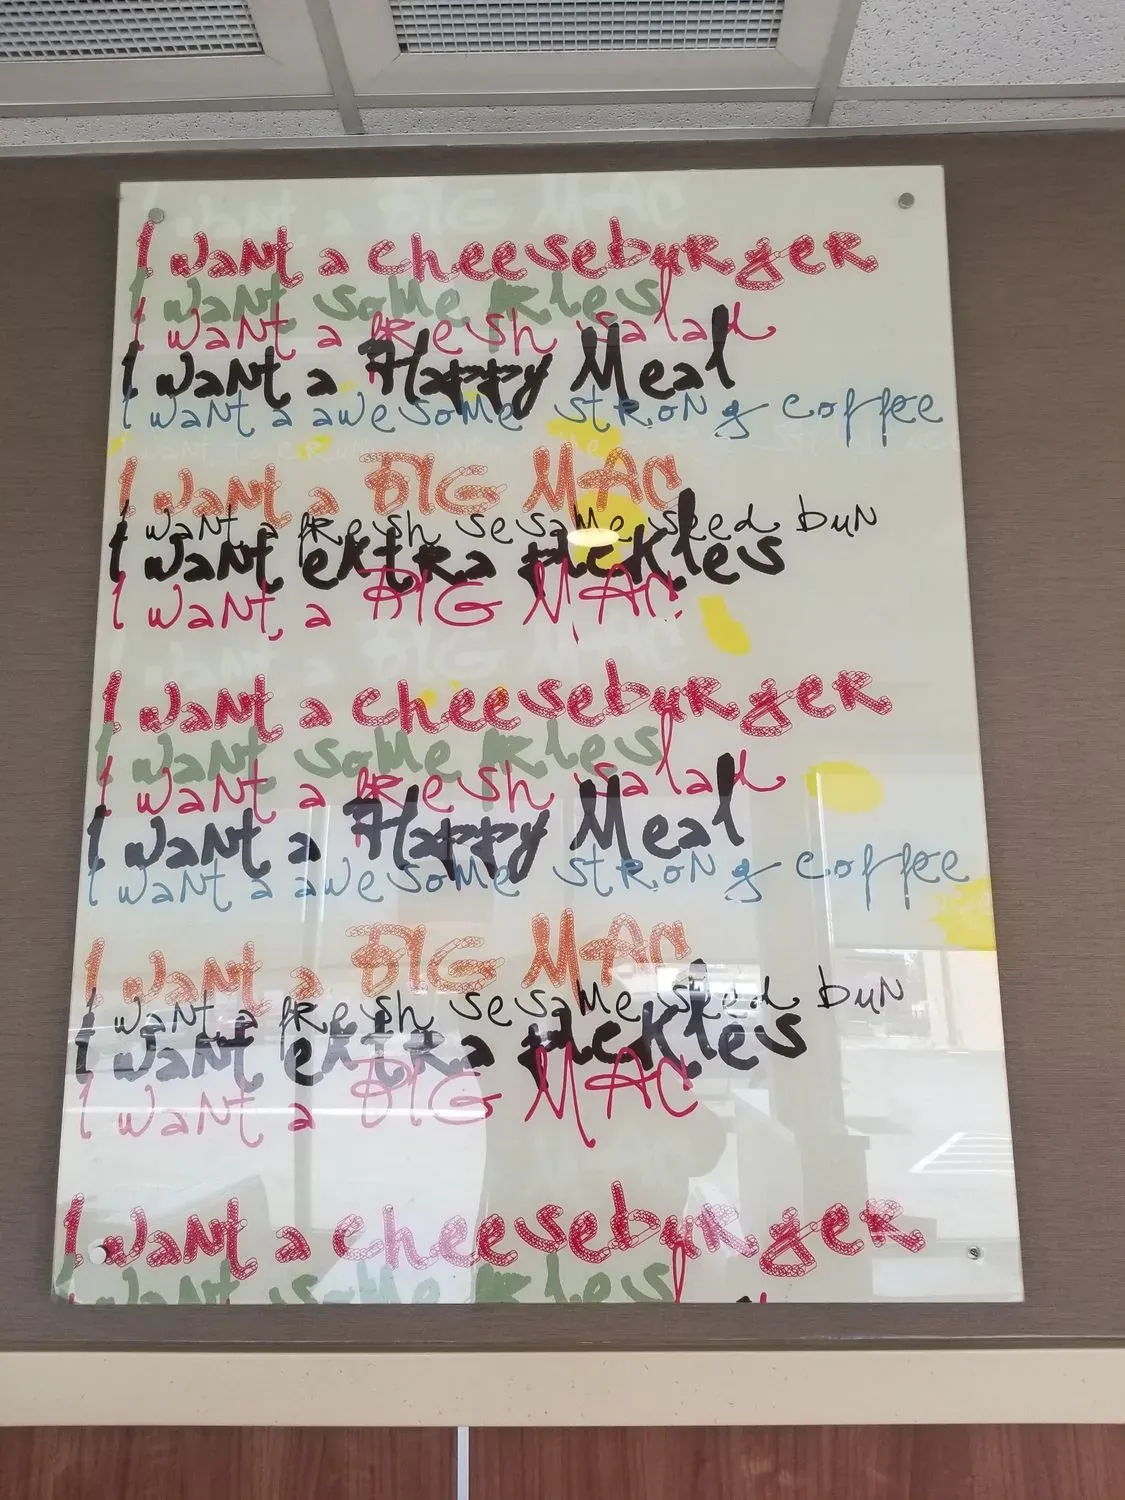 want a BIG MAC
I want a cheeseburger
I want some fries
I want a fresh salad
I want a Happy Meal
I want a awesome strong coffee
I want a BIG MAC
I want a fresh sesame seed bun
I want extra pickles
I want a BIG MAC
want a BIG MAC
I want a cheeseburger
I want some fries
I want a fresh salad
I want a Happy Meal
I want a awesome strong coffee
I want a BIG MAC
I want a fresh sesame seed bun
I want extra pickles
I want a BIG MAC
I want a cheeseburger
I want some fries